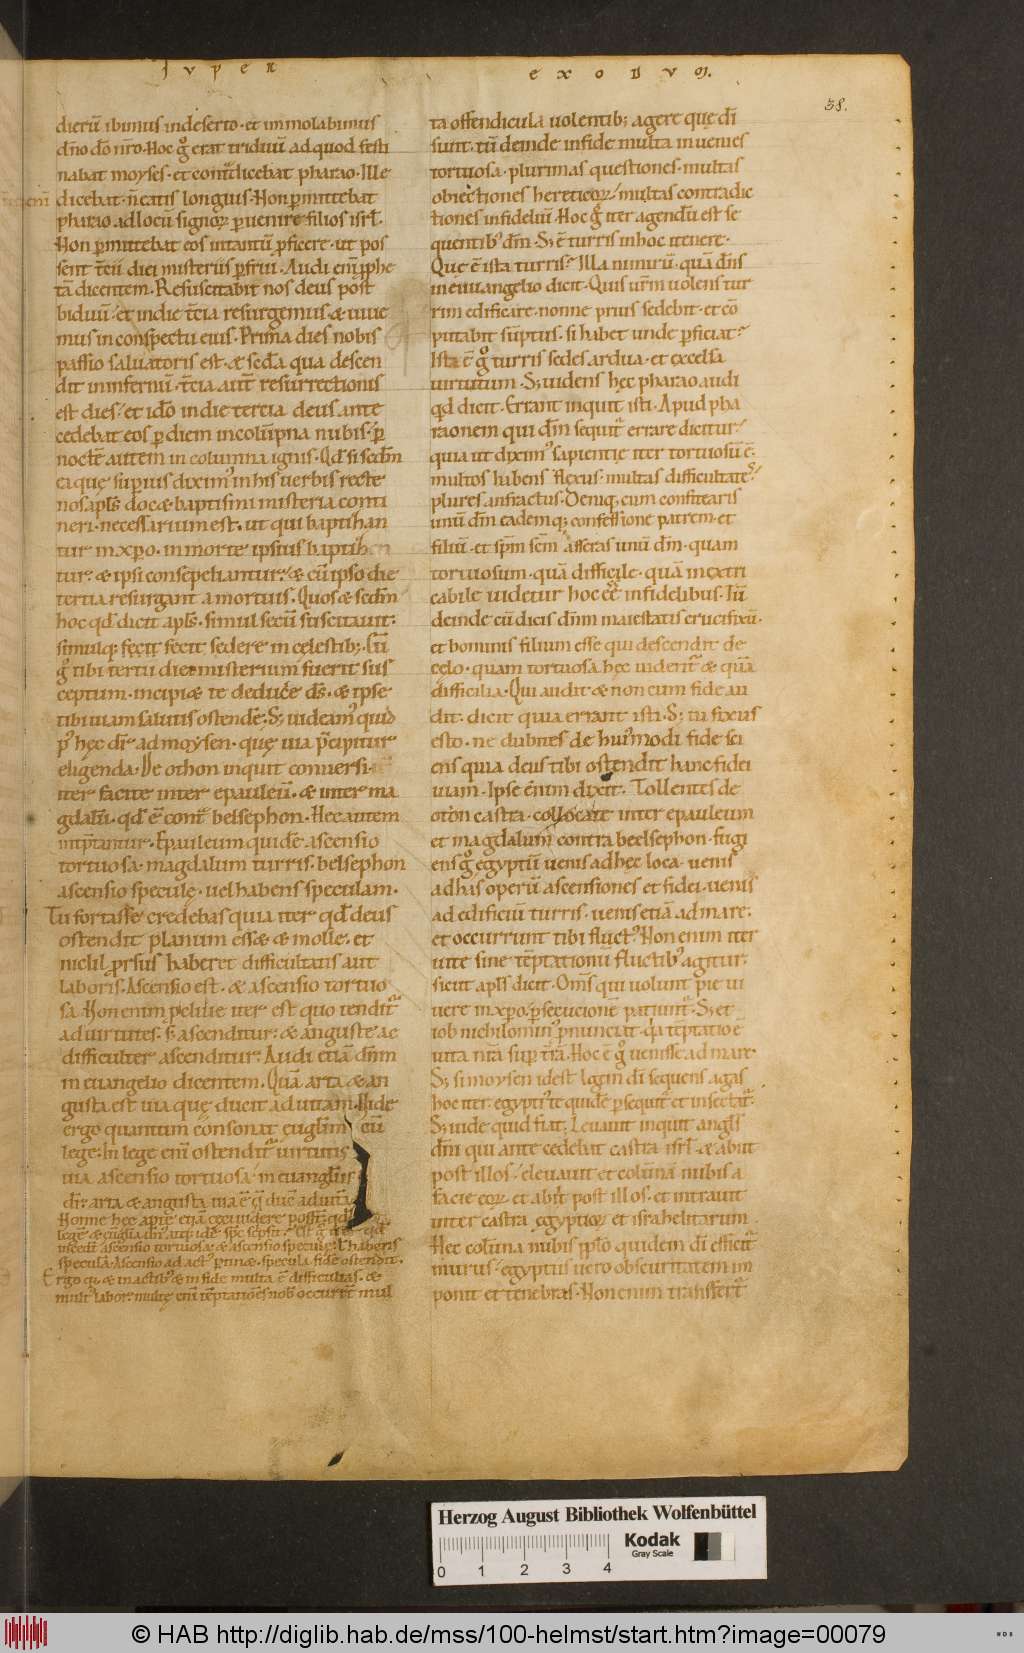 SVPER
EXODVM.
58.
dierū ibimus in deserto · et immolabimus
dn̄o dō nr̄o · Hoc gͦ erat triduū ad quod festi
nabat moyses · et cont̄dicebat pharao · Ille
dicebat · n̄ eatis longius · Non ꝑmittebat
pharao ad locū signoꝝ ꝑuenire filios isrl̄ ·
Non ꝑmittebat eos intantū ꝓficere · ut pos
sent t̄cii diei misteriis ꝑfrui · Audi eni ꝓphe
tā dicentem · Resuscitabit nos deus post
biduū · et in die t̄cia resurgemus · & uiue
mus in conspectu eius · Prima dies nobis
passio saluatoris est · & sc̄da qua descen
dit in infernū · t̄cia aut̄ resurrectionis
est dies · et idō in die tercia deus ante
cedebat eos ꝑ diem in colūpna nubis · ꝑ
noctē autem in columna ignis · Qd̄ si sc̄dm
ea quę supius dixim᾽ in his uerbis recte
nos apl̄s doc& baptismi misteria conti
neri · necessarium est · ut qui baptizan
tur in xp̄o · in morte ipsius baptizen
tur · & ipsi consepeliantur · & cū ipso die
tertia resurgant a mortuis · Quos & sc̄dm
hoc qd̄ dicit apl̄s · simul secū suscitauit ·
simulq; fecit sedere in celestib; · Cū
gͦ tibi tertii diei misterium fuerit sus
ceptum · incipi& te deducere ds̄ · & ipse
tibi uiam salutis ostendē · S; uideam᾽ quid
p᾽ hęc dr̄ ad moysen · quę uia p̄cipitur
eligenda · De othon inquit conuersi
iter facite inter epauleū · & inter ma
gdalū · qd̄ ē cont̄ belsephon · Hec autem
int̄p̄tantur · Epauleum quidē ascensio
tortuosa · magdalum turris · belsephon
ascensio speculę · uel habens speculam ·
Tu fortasse credebas quia iter qd̄ deus
ostendit planum ess& & molle · et
nichil ꝓrsus haberet difficultatis aut
laboris · Ascensio est · & ascensio tortuo
sa · Non enim ꝓcliue iter est quo tendit᾽
ad uirtutes · s; ascenditur · & anguste ac
difficulter ascenditur · Audi etiā dn̄m
in euangelio dicentem · Quā arta & an
gusta est uia quę ducit ad uitam · Uide
ergo quantum consonat euglim̄ cū
lege · In lege eni ostendit᾽ uirtutis
uia ascensio tortuosa · in euangliis
dr̄ · arta & angusta uia ē q̄ duc ad uitā
Nonne hęc apte etiā ceci uidere poss̄t qd̄
legē & euglia
inced& ascensio tortuosa & ascensio speculę · l habens
speculā · Ascensio ad act᾽ ꝑtin& · specula fide ostendit ·
Ergo quia & in actib᾽ & in fide multa ē difficultas · &
mult᾽ labor · multę eni tēptationes nob̄ occurrēt mul
ta offendicula uolentib; agere quę dī
sunt · tū deinde in fide multa inuenies
tortuosa · plurimas questiones · multas
obiectiones hereticoꝝ · multas contradic
tiones infideliū · Hoc gͦ iter agendū est se
quentib᾽ dm̄ · S; ē turris in hoc itenere ·
Quę ē ista turris? Illa nimirū · quā dn̄s
in euuangelio dicit · Quis ur̄m uolens tur
rim edificare · nonne prius sedebit · et cō
putabit sūptus · si habet unde ꝑficiat?
Ista ē gͦ turris sedes ardua · et excelsa
uirtutum · S; uidens hęc pharao audi
qd̄ dicit · Errant inquit isti · Apud pha
raonem qui dm̄ sequit᾽ errare dicitur ·
quia ut dixim᾽ sapientię iter tortuosū ē ·
multos habens flexus · multas difficultates ·
plures anfractus · Deniq; cum confitearis
unū dm̄ eademq; confessione patrem · et
filiū · et sp̄m sc̄m asseras unū dm̄ · quam
tortuosum · quā difficile · quā inextri
cabile uidetur hoc ēē infidelibus · Tū
deinde cū dicis dn̄m maiestatis crucifixū ·
et hominis filium esse qui descendit de
cęlo · quam tortuosa hęc uident᾽ & quā
difficilia · Qui audit & non cum fide au
dit · dicit quia errant isti · S; tu fixus
esto · ne dubites de hui᾽modi fide sci
ens quia deus tibi ostendit hanc fidei
uiam · Ipse enim dixit · Tollentes de
oton castra · collocate inter epauleum
et magdalum contra beelsephon · fugi
ens gͦ egyptū uenis ad hęc loca · uenis
ad has operū ascensiones et fidei · uenis
ad edificiū turris · uenis etiā ad mare ·
et occurrunt tibi fluct᾽ · Non enim iter
uite sine tēptationū fluctib᾽ agitur ·
sicut apl̄s dicit · Om̄s qui uolunt pie ui
uere in xp̄o · ꝑsecucionē patiunt᾽ · S; et
iob nichilomin᾽ ꝓnunciat · qa tēptatio ē
uita nr̄a sup t̄rā · Hoc ē gͦ uenisse ad mare ·
S; si moysen idest legem dī sequens agas
hoc iter · egypti᾽ te quidē ꝑsequit᾽ et insectat᾽ ·
S; uide quid fiat · Leuauit inquit angl̄s
dm̄ qui antecedebat castra isrl̄ · & abiit
post illos · eleuauit et colūna nubis a
facie eoꝝ · et abiit post illos · et intrauit
inter castra egyptioꝝ et israhelitarum
Hec colūna nubis pplo quidem dī efficit᾽
murus · egyptiis uero obscuritatem im
ponit et tenebras · Non enim transfert᾽
Herzog August Bibliothek Wolfenbüttel
Kodak
Gray Scale
0 1 2 3 4
© HAB http://diglib.hab.de/mss/100-helmst/start.htm?image=00079